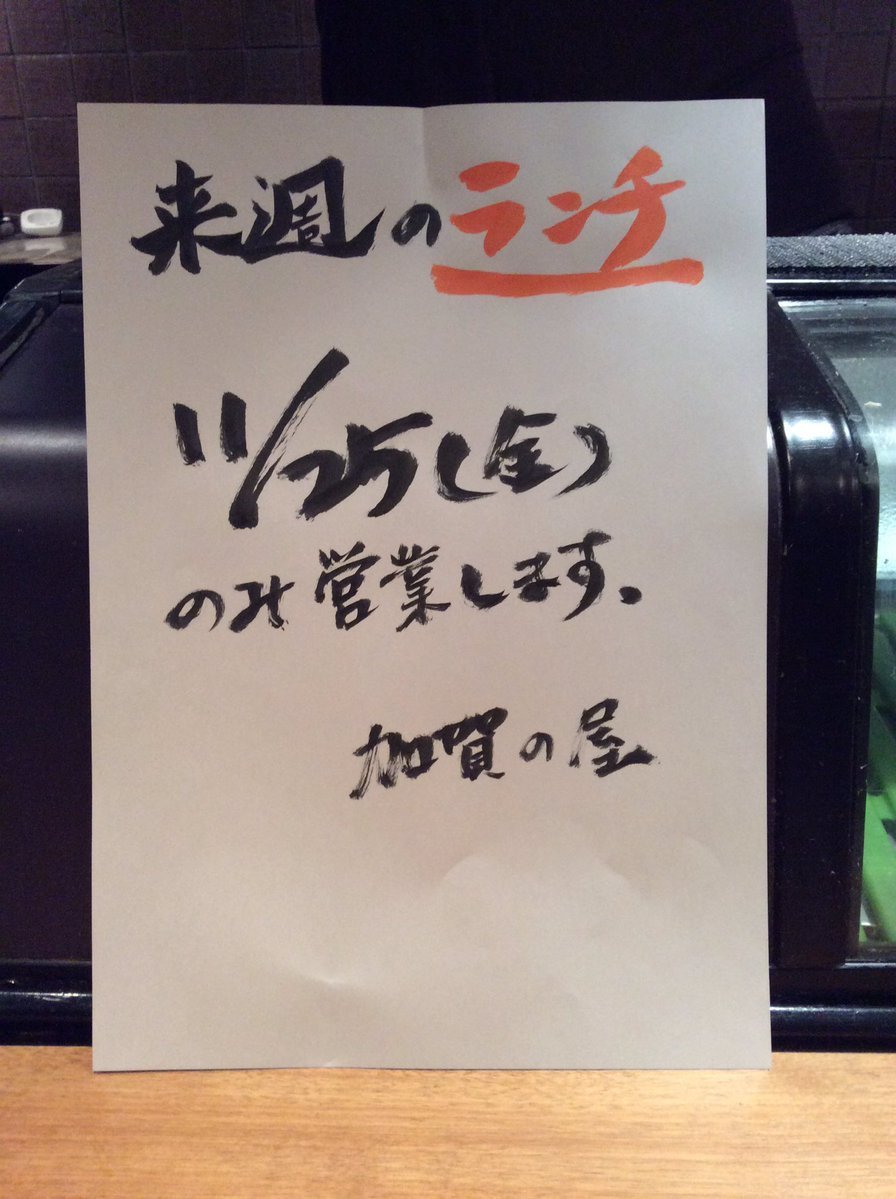 来週のランチ
11/25(金)
のみ営業します。
加賀の屋